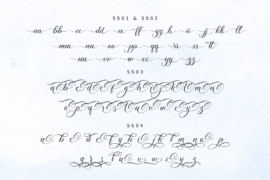 SS01 & SS02
aa bb cc dd ee ff gg h ii jj kk ll
mm nn oo pp qq rr ss tt
uu vv w xx yy zz
SS03
a b c d e f g h i j k l m n o
p q r s t u v w x y z
SS04
a b c d e f g h i j k l m n o p
q r s t u v w x y z